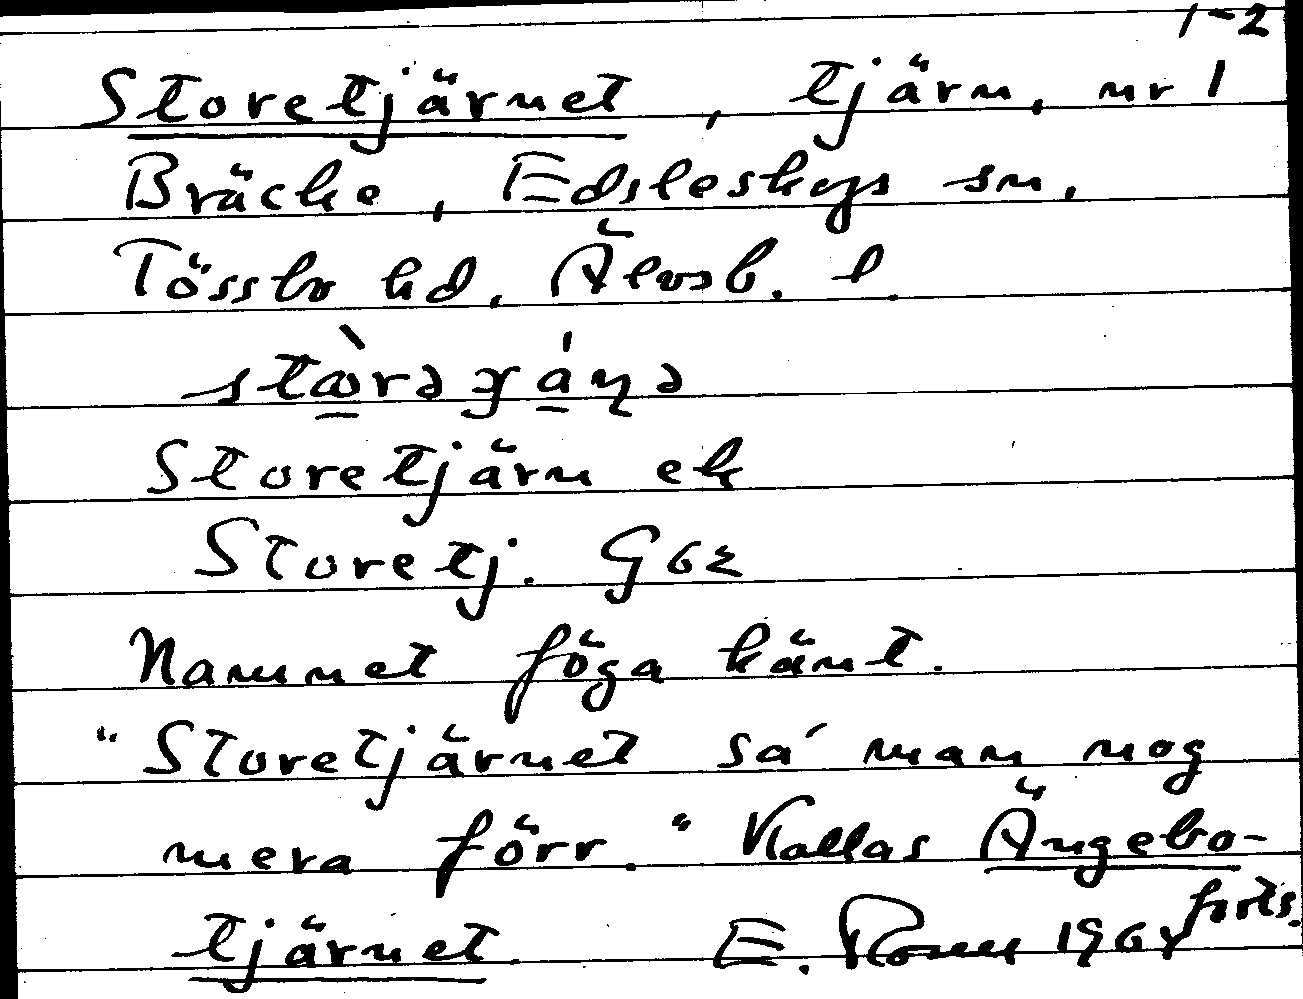 1-2
Storetjärnet, tjärn, nr 1
Bräcke, Edsleskogs sn,
Tössbo hd, Älvsb. l
Storetjärn ek
Storetj. G62
Namnet föga känt.
"Storetjärnet sa' man nog
mera förr." Kallas Ängebo-
tjärnet. E. 196 forts.